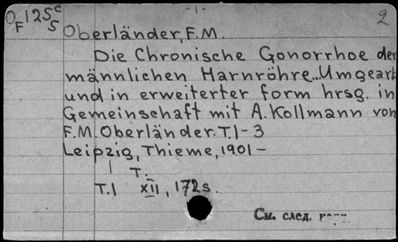 - 1 -
O 125c
F S
2
Oberländer, F.M.
Die Chronische Gonorrhoe der
männlichen Harnröhre... Umgearb
und in erweiterter form hrsg. in
Gemeinschaft mit A. Kollmann von
F.M. Oberländer. T.1-3
Leipzig, Thieme, 1901 -
1 T.
T.1 XII, 172s.
См. след.